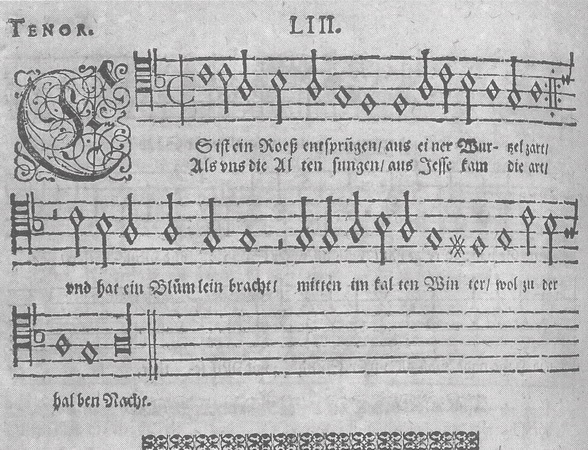 TENOR. LIII.
ES ist ein Roeß entsprügen/ aus ei ner Wur- tzel zart/
Als vns die Al ten sungen/ aus Jesse kam die art/
vnd hat ein Blům lein bracht/ mitten im kal ten Win ter/ wol zu der
hal ben Nacht.